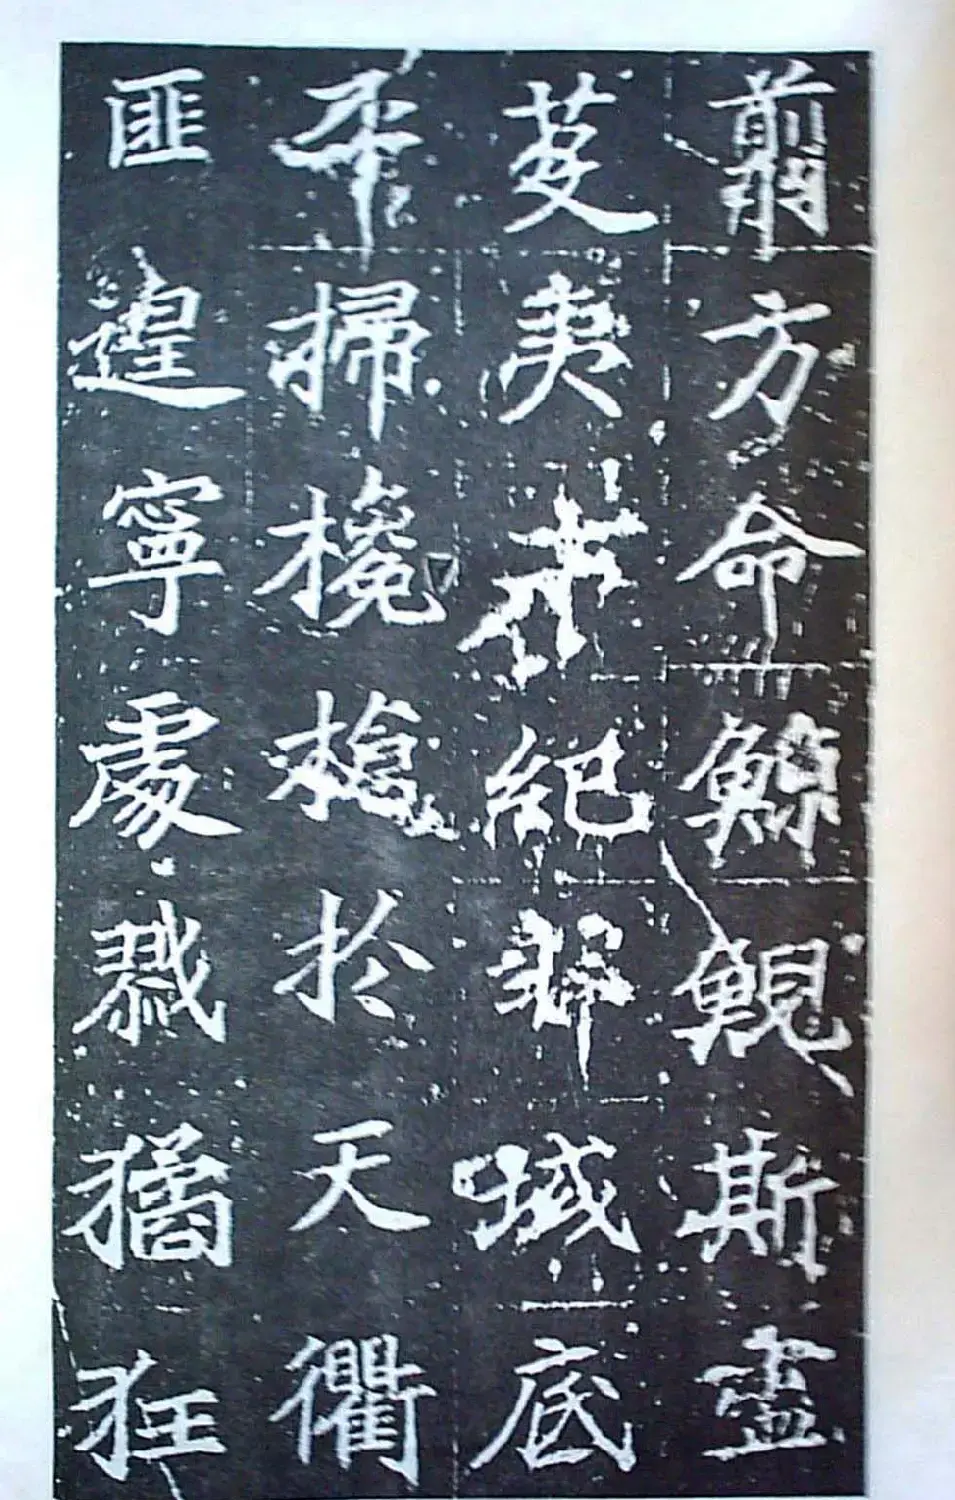 翦方命鯨鯢斯盡
芟夷紀群域底
平掃欃槍於天衢
匪遑寧處戮獝狂